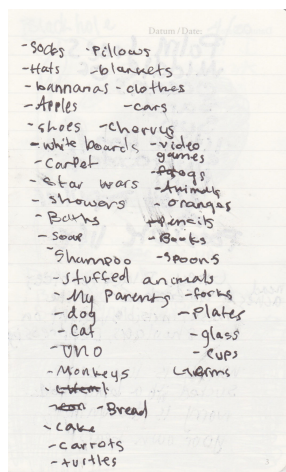 Datum / Date:
-Socks -Pillows
-Hats -blankets
-bannanas -clothes
-Apples -cars
-shoes -Cherrys
-white boards -video games
-Carpet -Frogs
-Star wars -Animals
-Showers -oranges
-Baths -Pencils
-Soap -Books
-Shampoo -Spoons
-Stuffed animals
-My Parents -forks
-dog -Plates
-Cat -glass
-UNO -cups
-Monkeys
-Bread
-cake
-carrots
-turtles